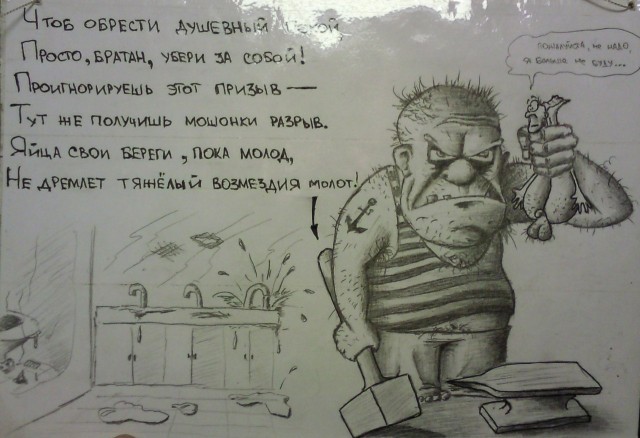 Чтоб обрести душевный покой,
Просто, братан, убери за собой!
Проигнорируешь этот призыв —
Тут же получишь мошонки разрыв.
Яйца свои береги, пока молод,
Не дремлет тяжёлый возмездия молот!
Пожалуйста, не надо,
я больше не буду...